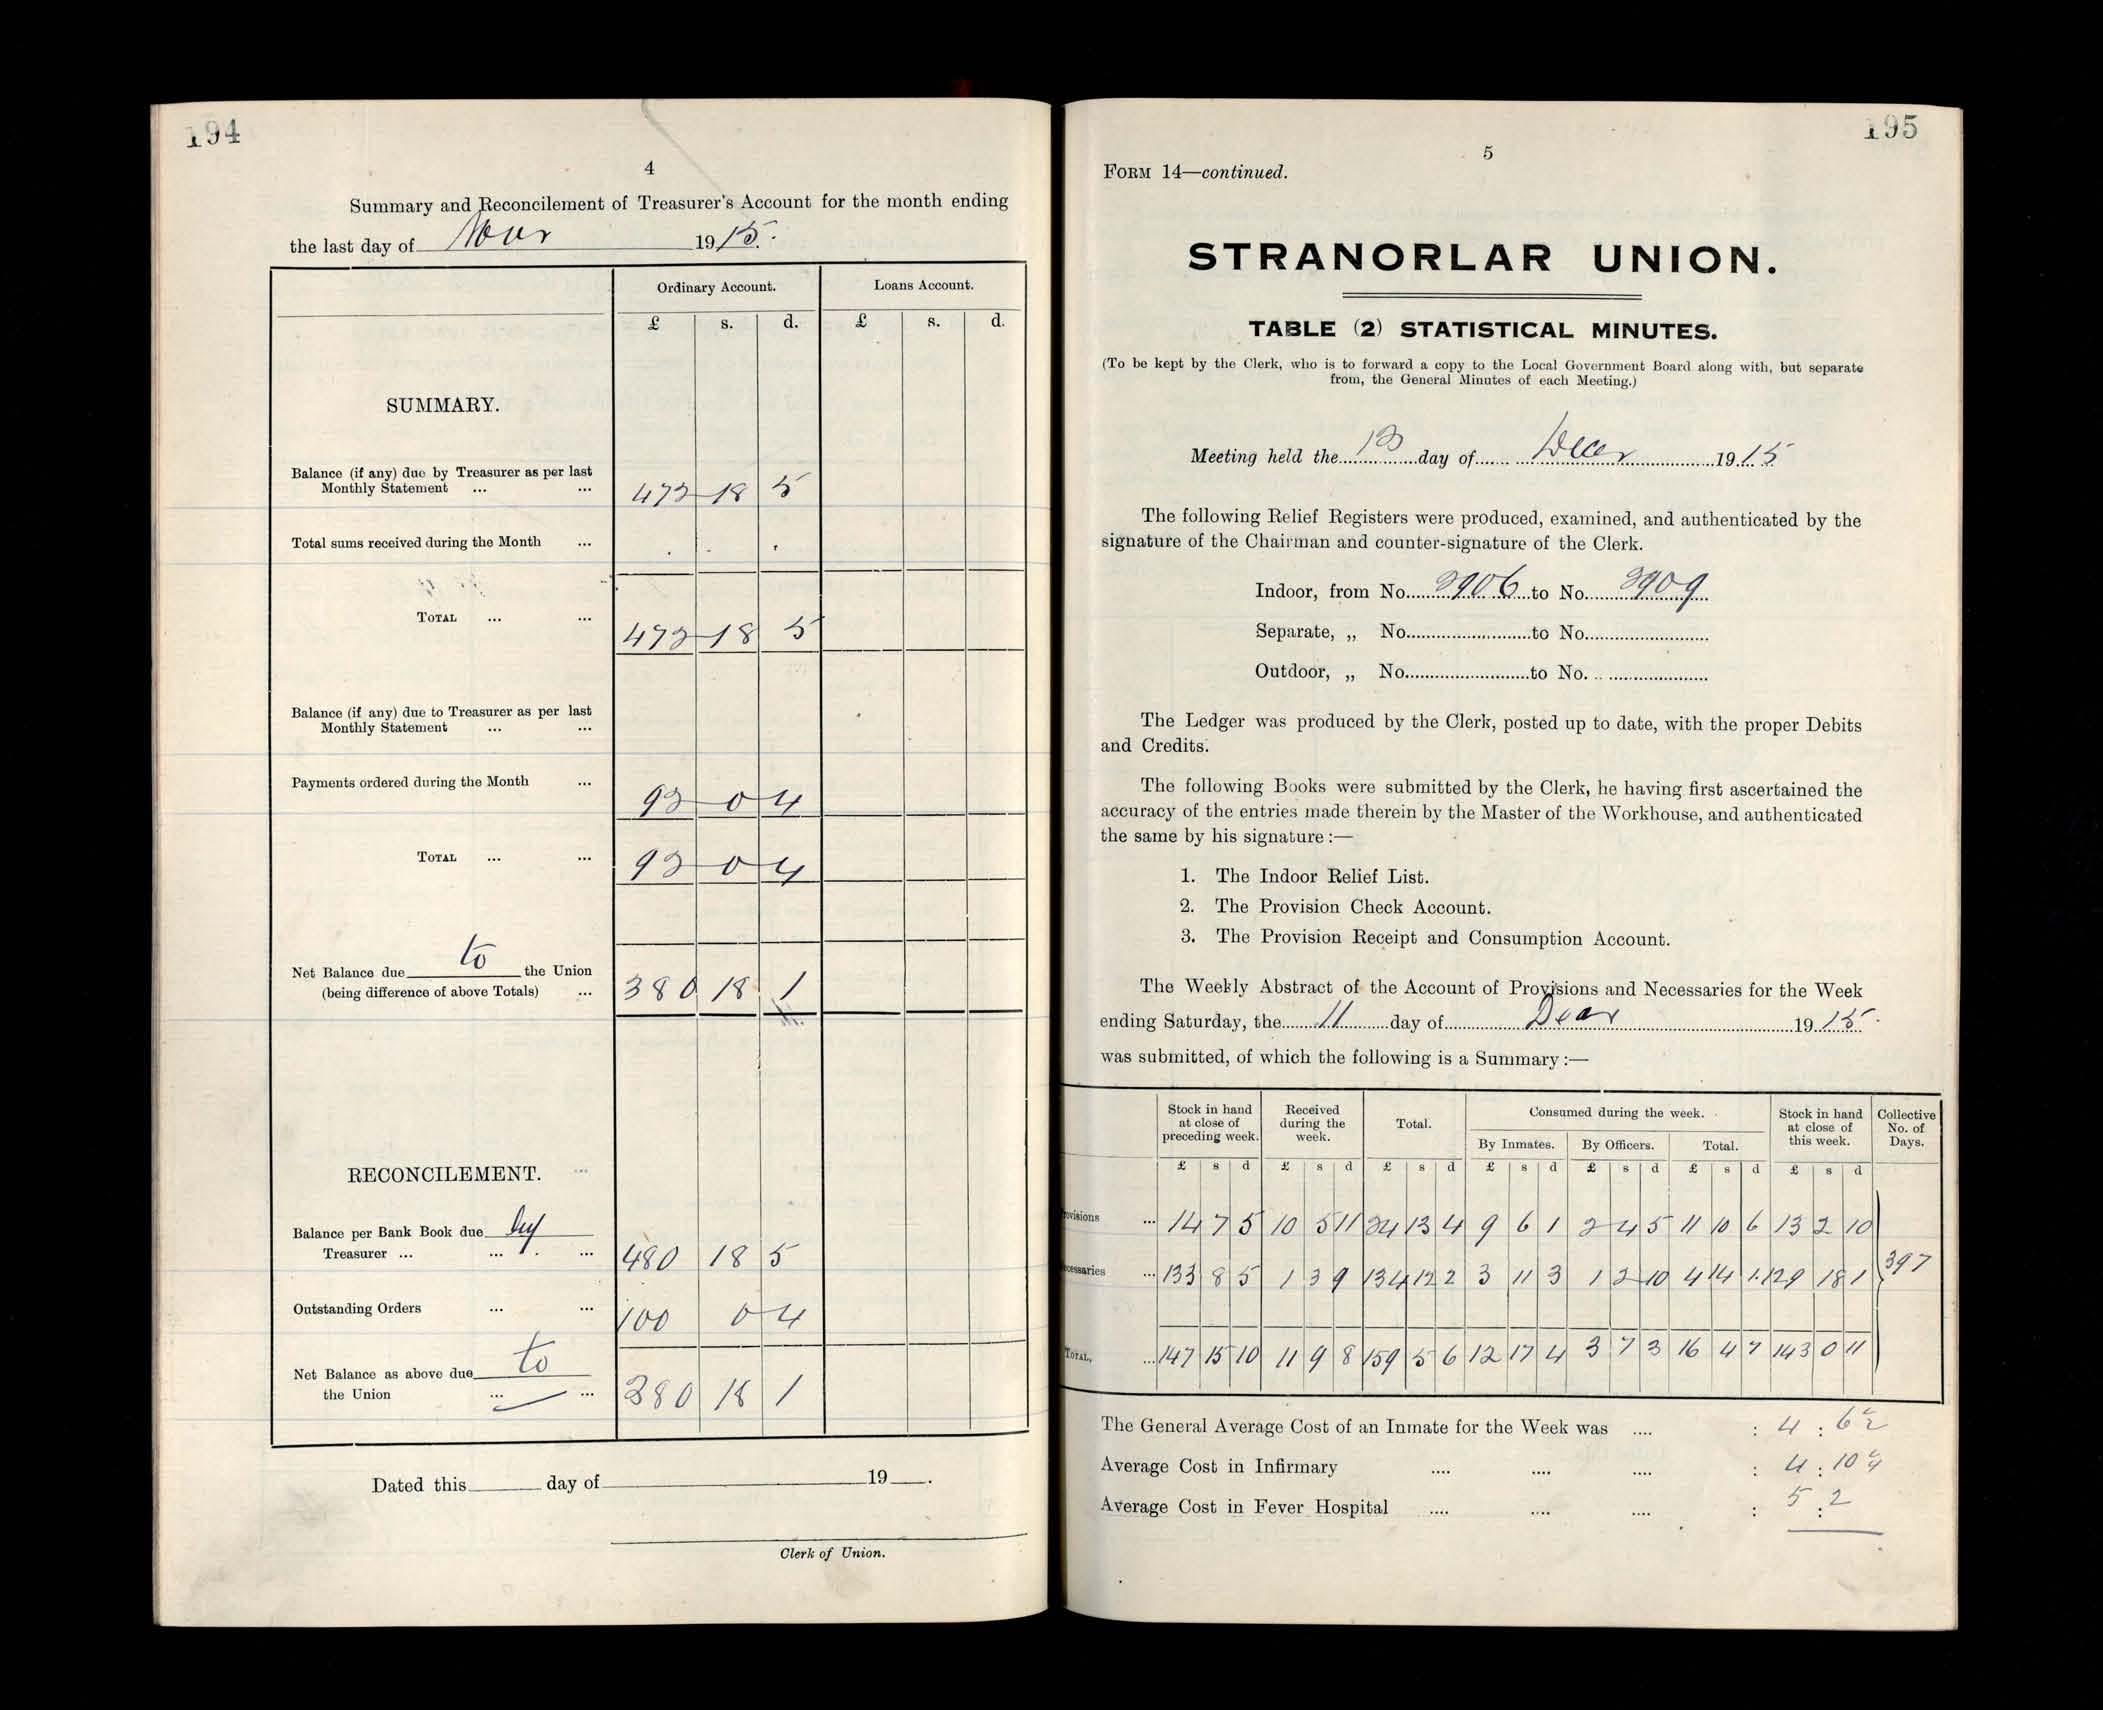 194
4
Summary and Reconcilement of Treasurer's Account for the month ending
the last day of Novr 1915.
Ordinary Account. Loans Account.
£ s. d. £ s. d.
SUMMARY.
Balance (if any) due by Treasurer as per last
Monthly Statement ... ... 472 18 5
Total sums received during the Month ... . . .
TOTAL ... ... 472 18 5
Balance (if any) due to Treasurer as per last
Monthly Statement ... ...
Payments ordered during the Month ... 92 0 4
TOTAL ... ... 92 0 4
Net Balance due to the Union
(being difference of above Totals) ... 380 18 1
RECONCILEMENT. ...
Balance per Bank Book due by
Treasurer ... ... ... 480 18 5
Outstanding Orders ... ... 100 0 4
Net Balance as above due to
the Union ... ... 380 18 1
Dated this day of 19 .
Clerk of Union.
195
5
FORM 14—continued.
STRANORLAR UNION.
TABLE (2) STATISTICAL MINUTES.
(To be kept by the Clerk, who is to forward a copy to the Local Government Board along with, but separate
from, the General Minutes of each Meeting.)
Meeting held the 13 day of Decr 1915
The following Relief Registers were produced, examined, and authenticated by the
signature of the Chairman and counter-signature of the Clerk.
Indoor, from No. 2906 to No. 2909
Separate, „ No. to No.
Outdoor, „ No. to No.
The Ledger was produced by the Clerk, posted up to date, with the proper Debits
and Credits.
The following Books were submitted by the Clerk, he having first ascertained the
accuracy of the entries made therein by the Master of the Workhouse, and authenticated
the same by his signature :—
1. The Indoor Relief List.
2. The Provision Check Account.
3. The Provision Receipt and Consumption Account.
The Weekly Abstract of the Account of Provisions and Necessaries for the Week
ending Saturday, the 11 day of Decr 1915.
was submitted, of which the following is a Summary :—
Stock in hand at close of preceding week. Received during the week. Total. Consumed during the week. Stock in hand at close of this week. Collective No. of Days.
By Inmates. By Officers. Total.
£ s d £ s d £ s d £ s d £ s d £ s d £ s d
rovisions ... 14 7 5 10 5 11 24 13 4 9 6 1 2 4 5 11 10 6 13 2 10
ecessaries ... 133 8 5 1 3 9 134 12 2 3 11 3 1 2 10 4 14 1 129 18 1 397
TOTAL, ... 147 15 10 11 9 8 159 5 6 12 17 4 3 7 3 16 4 7 143 0 11
The General Average Cost of an Inmate for the Week was .... : 4 : 6½
Average Cost in Infirmary .... .... .... : 4 : 10¼
Average Cost in Fever Hospital .... .... .... : 5 : 2